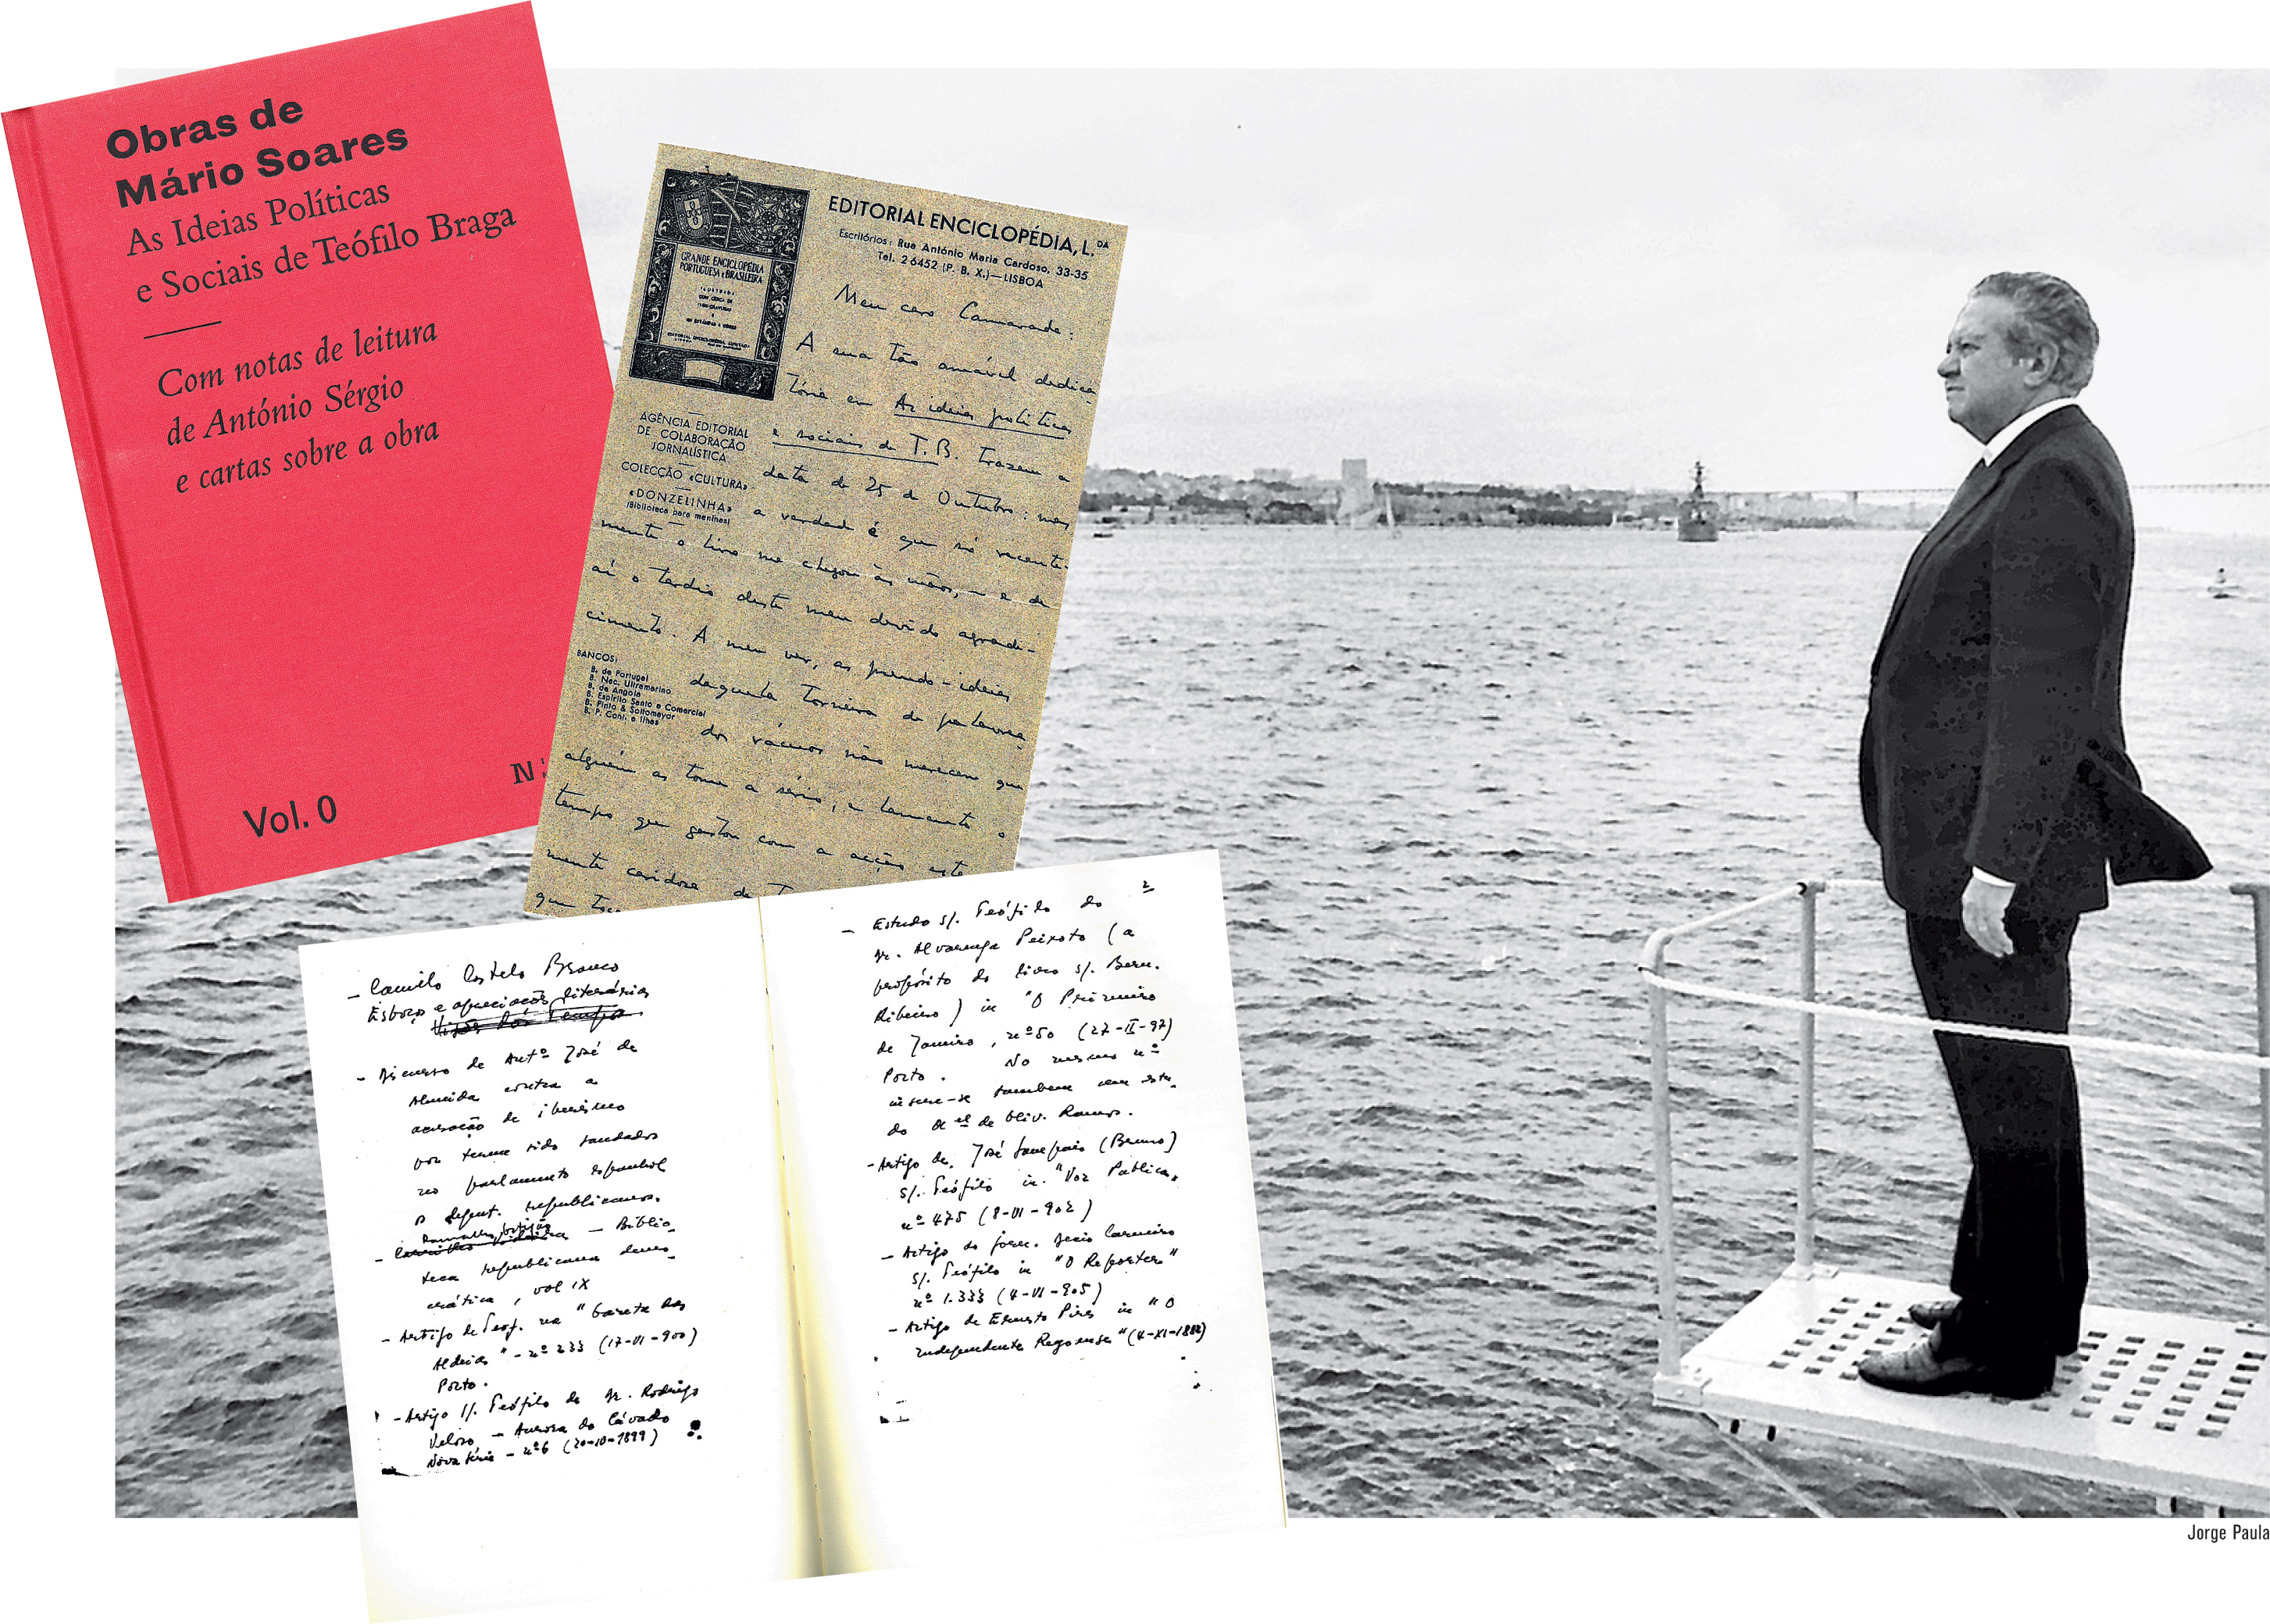 Obras de
Mário Soares
As Ideias Políticas
e Sociais de Teófilo Braga
Com notas de leitura
de António Sérgio
e cartas sobre a obra
Vol. 0
EDITORIAL ENCICLOPÉDIA, L.DA
Escritórios: Rua António Maria Cardoso, 33-35
Tel. 26452 (P. B. X.)—LISBOA
GRANDE ENCICLOPÉDIA
PORTUGUESA E BRASILEIRA
AGÊNCIA EDITORIAL
DE COLABORAÇÃO
JORNALÍSTICA
COLECÇÃO «CULTURA»
«DONZELINHA»
(Biblioteca para meninas)
BANCOS:
B. de Portugal
B. Nac. Ultramarino
B. de Angola
B. Espírito Santo e Comercial
B. Pinto & Sottomayor
B. P. Cont. e Ilhas
Meu caro Camarada:
A sua tão amável dedica-
tória em As ideias políticas
e sociais de T. B. trazem a
data de 25 de Outubro: mas
a verdade é que só recente-
mente o livro me chegou às mãos, e de
aí o tardio deste meu devido agrade-
cimento. A meu ver, as pseudo-ideias
daquela torneira de palavrea
dos vácuos não merecem que
alguém as tome a sério, e lamento o
tempo que gastou com a acção
mente caridosa de
que
- Camilo Castelo Branco
Esboço e apreciações literárias
- Discurso de Antº José de
Almeida contra a
acusação de iberismo
por terem sido saudados
no parlamento espanhol
os deput. republicanos.
Ramalho Ortigão
- Biblio-
teca republicana demo-
crática, vol IX
- Artigo de Teof. na "Gazeta das
Aldeias" - nº 233 (17-VI-900)
Porto.
- Artigo s/. Teófilo do Dr. Rodrigo
Veloso - Aurora do Cávado
Nova série - nº6 (20-10-1899)
2
- Estudo s/. Teófilo do
Dr. Alvarenga Peixoto (a
propósito do livro s/. Bern.
Ribeiro) in "O Primeiro
de Janeiro, nº 50 (27-II-97)
Porto. No mesmo nº
insere-se também um estu.
do de Oliv. Ramos.
- Artigo de José Sampaio (Bruno)
s/. Teófilo in "Voz Publica,
nº 475 (8-VI-902)
- Artigo do Carneiro
s/. Teófilo in "O Reporter"
nº 1.333 (4-VI-905)
- Artigo de Ernesto Pires in "O
independente Regoense" (4-XI-1882)
Jorge Paula